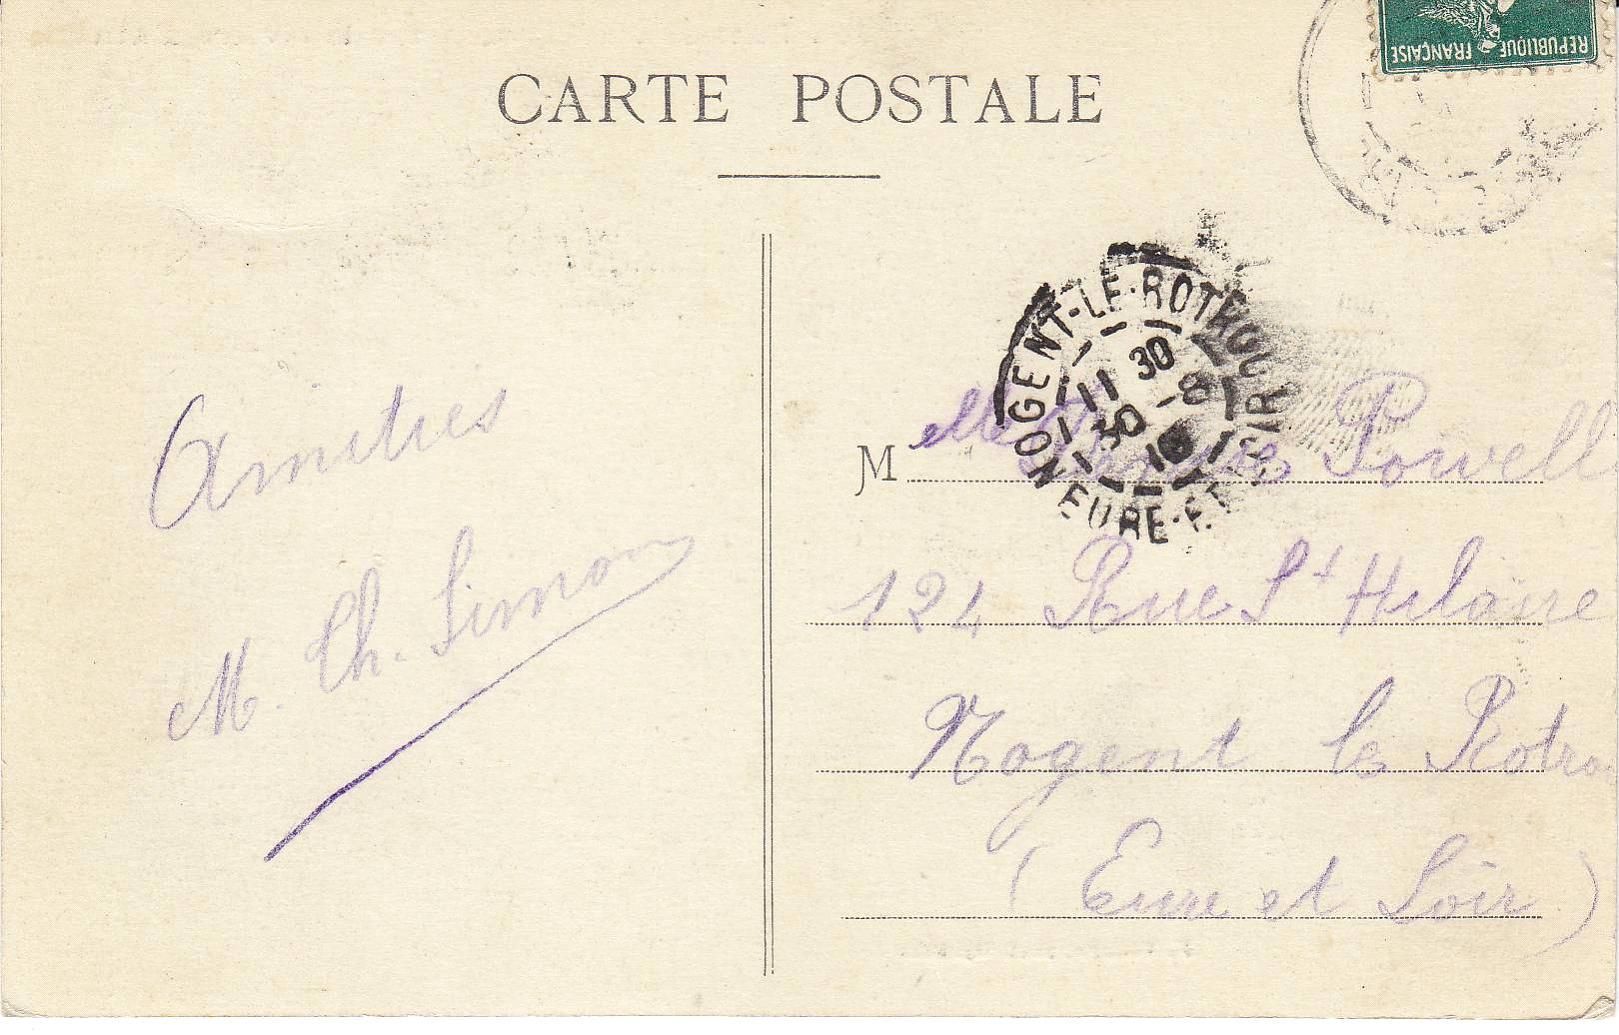 REPUBLIQUE FRANÇAISE
CARTE POSTALE
NOGENT-LE-ROTROU
EURE-ET-LOIR
11 30
30 -8
Amitiés
M. Ch. Simon
M elle Powell
124 Rue St Hilaire
Nogent le Rotro
(Eure et Loir)